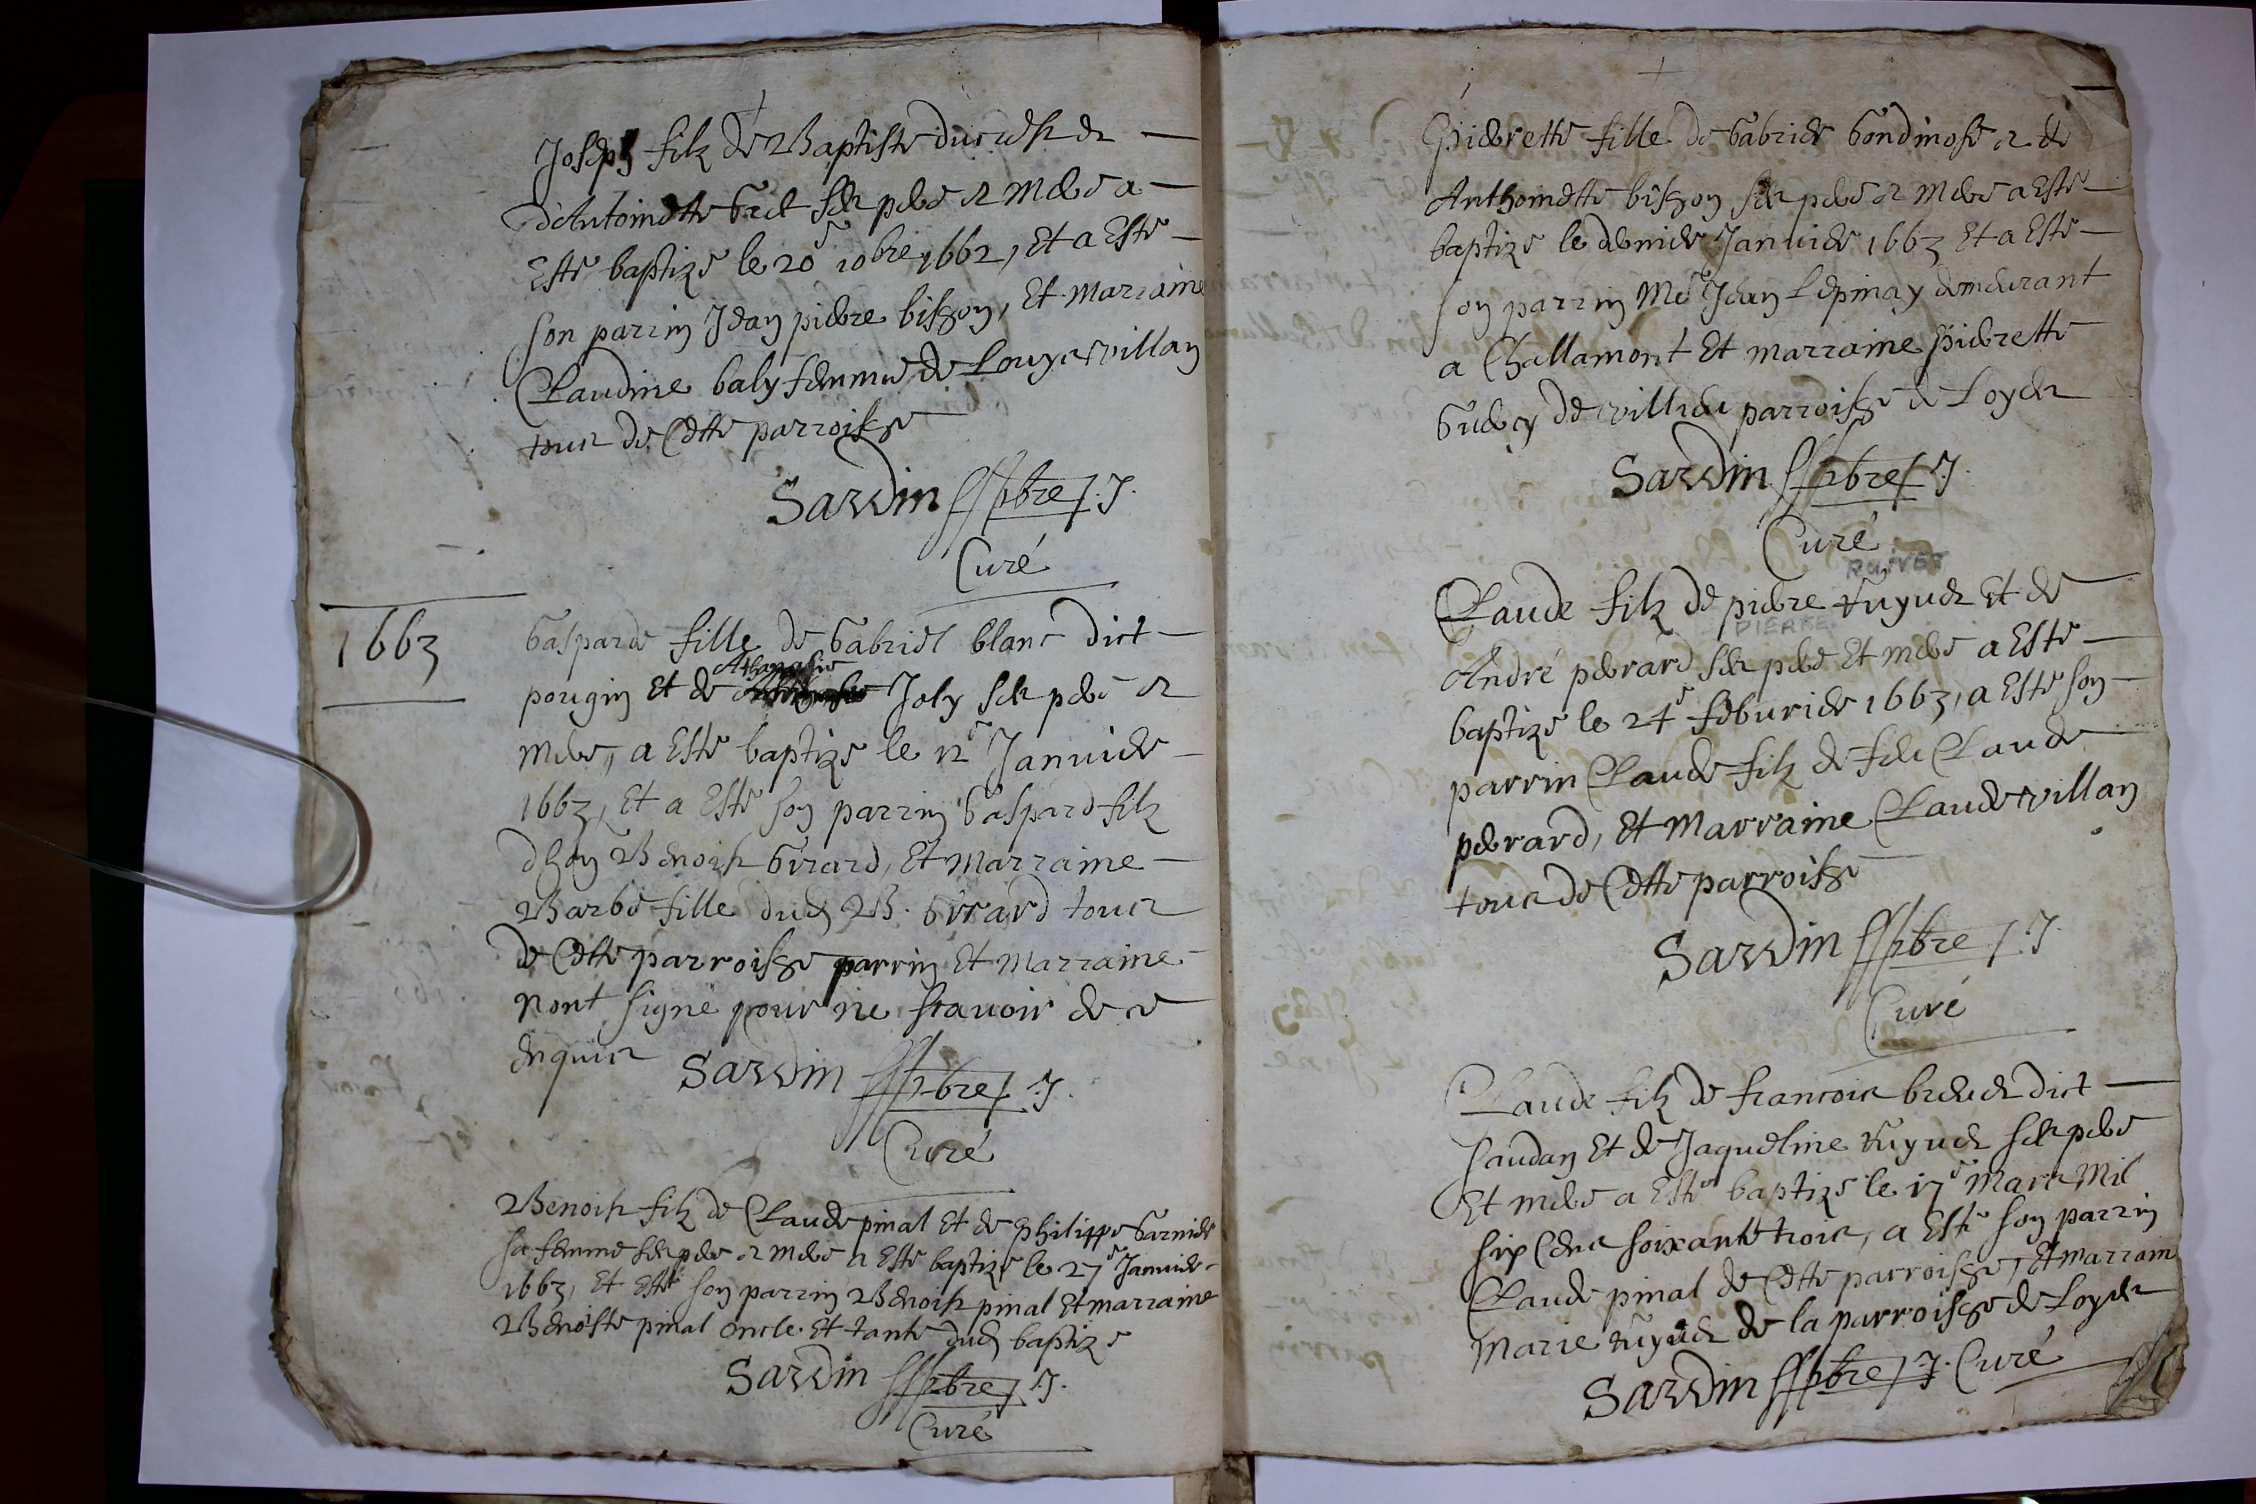 Joseph filz de Baptiste
d'Antoinette ses pere et mere a
Esté baptizé le 20e 10bre 1662, Et a Esté
son parrin Jean pierre bisson, Et Marraine
Claudine baly femme de Louys villan
tous de Cette parroisse
Sardin pbre J.
Curé
1663
Gasparde fille de Gabriel blanc dict
pougin Et de Athanasie Joly ses pere et
mere, a Esté baptizé le 12e Januier
1663, Et a Esté son parrin Gaspard filz
Benoist Girard, Et marraine
Barbe fille dud B. Girard tous
de Cette parroisse parrin Et Marraine
nont signé pour ne scauoir de ce
enquis Sardin pbre J.
Curé
Benoist filz de Claude pinal Et de philippe Garnier
sa femme ses pere et mere a Esté baptizé le 27e Januier
1663, Et Esté son parrin Benoist pinal Et marraine
Benoiste pinal oncle Et tante dud baptizé
Sardin pbre J.
Curé
Pierrette fille de Gabriel et de
Anthoinette bisson ses pere et mere a Esté
baptizé le dernier Januier 1663 Et a Esté
son parrin Me Jean Lespinay demeurant
a Challamont Et marraine pierrette
de parroisse de Loyes
Sardin pbre J.
Curé
RUIVET
Claude filz de pierre Ruyuet Et de
PIERRE
André perrard ses pere Et mere a Esté
baptizé le 24e feburier 1663, a Esté son
parrin Claude filz de feu Claude
perrard, Et Marraine Claude villan
tous de Cette parroisse
Sardin pbre J.
Curé
Claude filz de francois dict
saudan Et de Jaqueline Ruyuet ses pere
Et mere a Esté baptizé le 17e Mars Mil
six Cens soixante trois, a Esté son parrin
Claude pinal de Cette parroisse, Et marrain
Marie Ruyuet de la parroisse de Loyes
Sardin pbre J. Curé